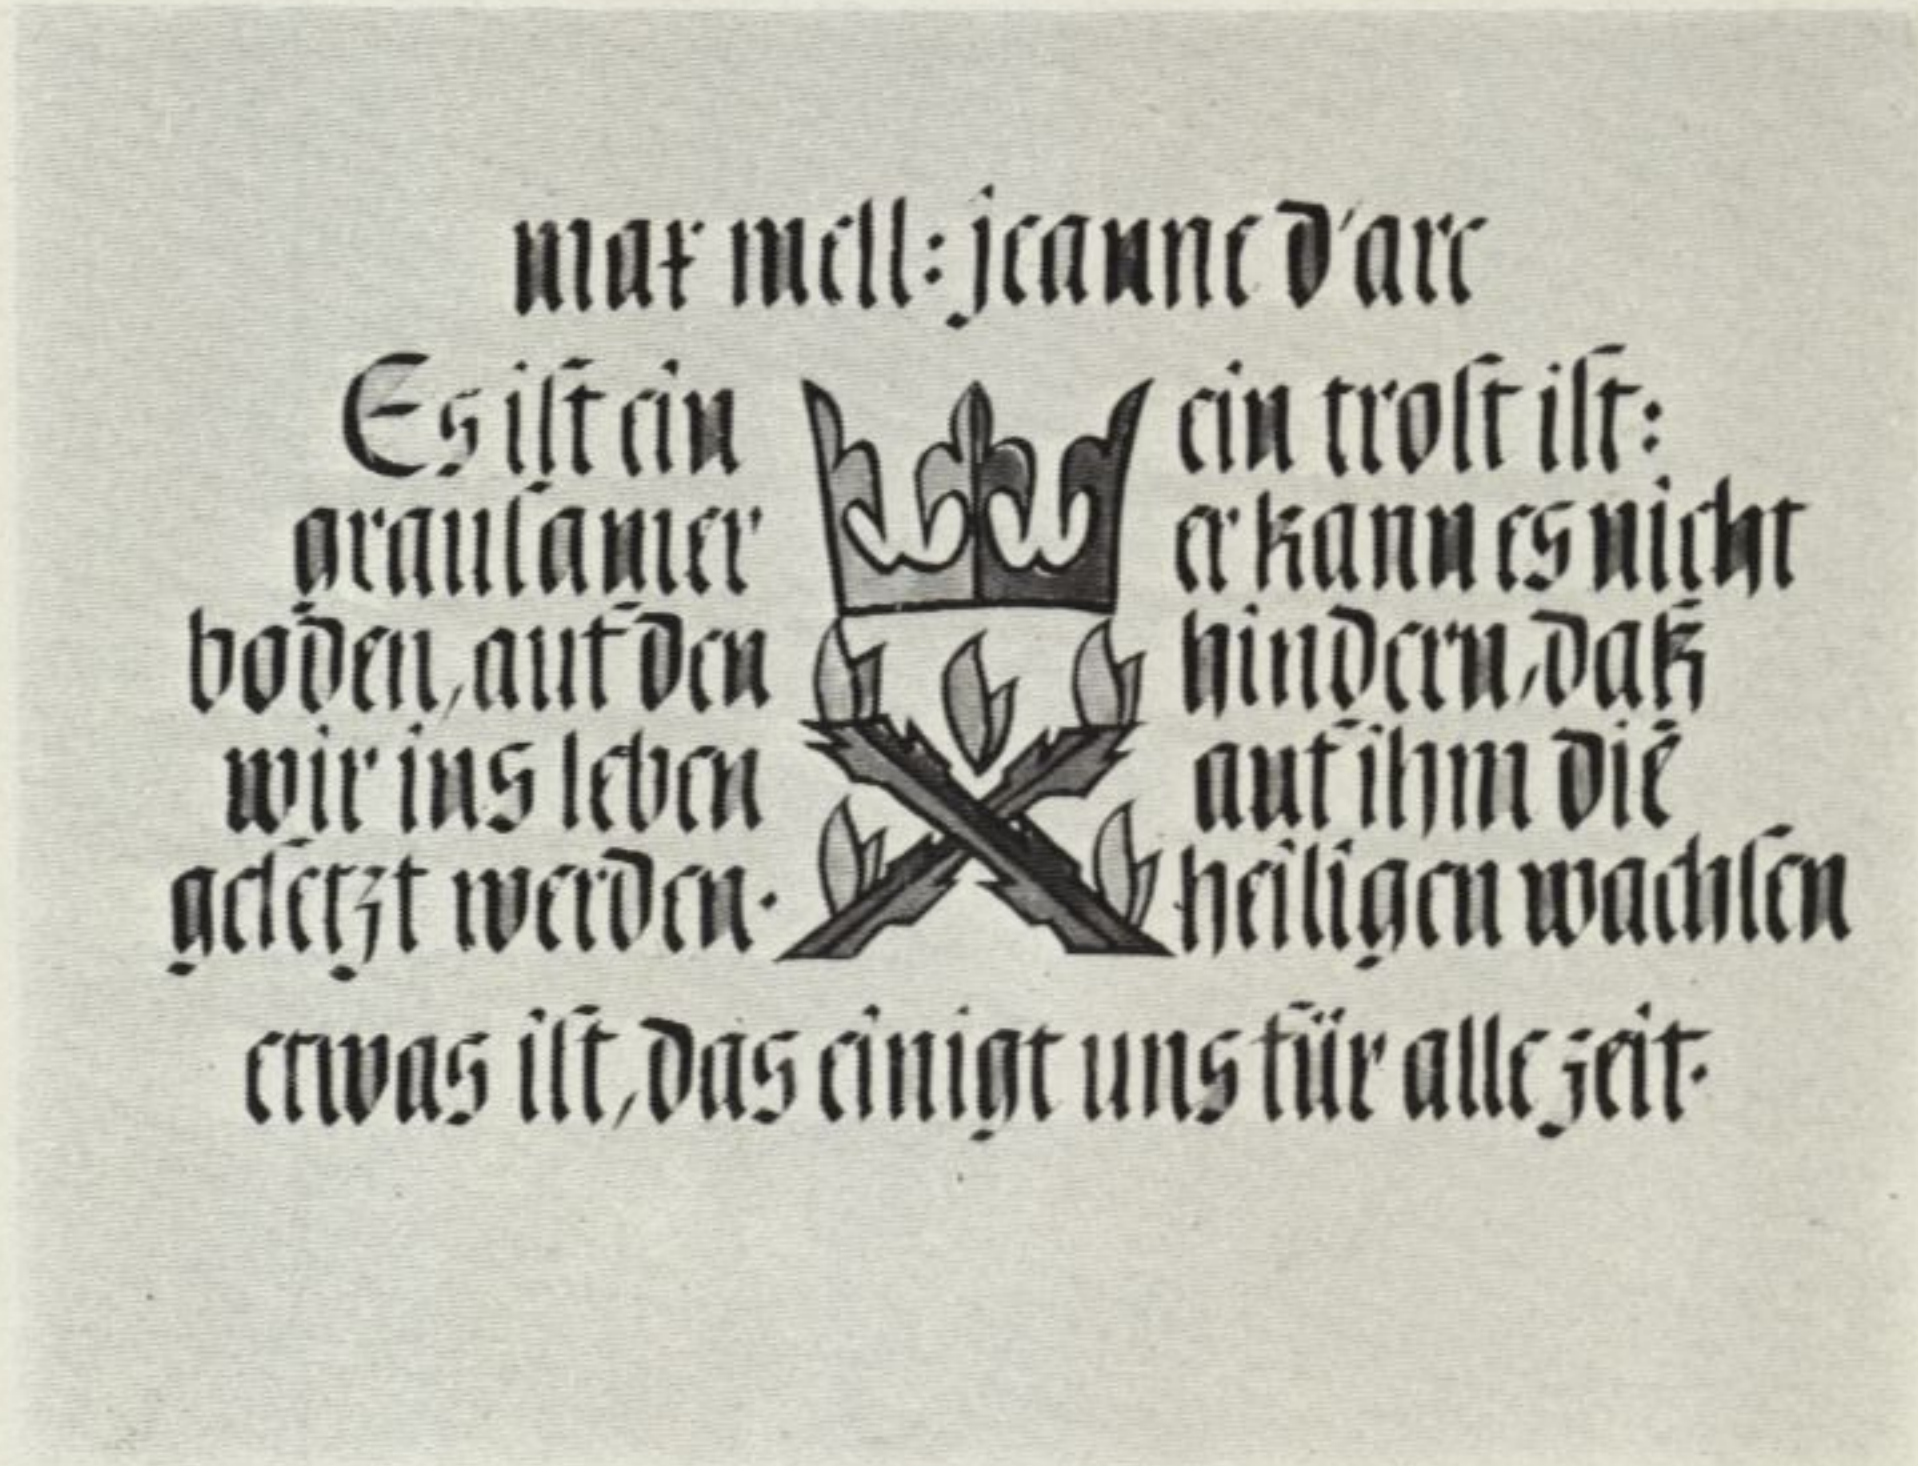 max mell: jeanne d'arc
Es ist ein
grausamer
boden, auf den
wir ins leben
gesetzt werden·
ein trost ist:
er kann es nicht
hindern, daß
auf ihm die
heiligen wachsen
etwas ist, das einigt uns für alle zeit·